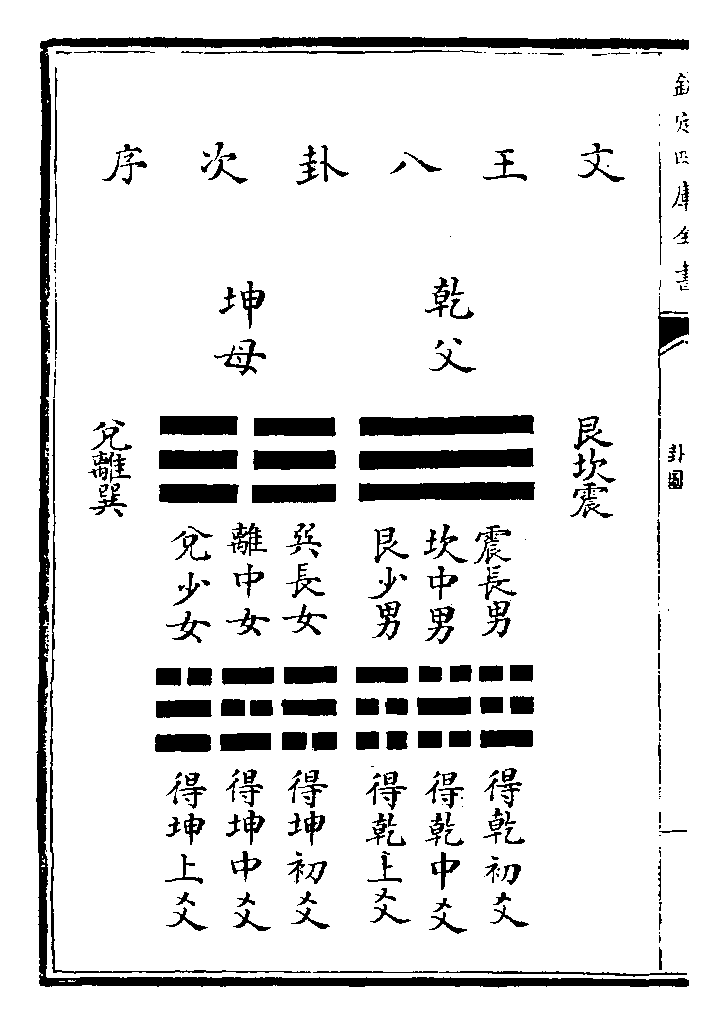 欽定四庫全書
卦圖
文王八卦次序
乾父
坤母
艮坎震
兌離巽
震長男
坎中男
艮少男
巽長女
離中女
兌少女
得乾初爻
得乾中爻
得乾上爻
得坤初爻
得坤中爻
得坤上爻